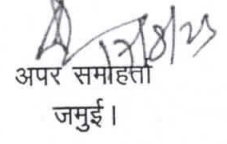 17/8/23
अपर समाहर्ता
जमुई।